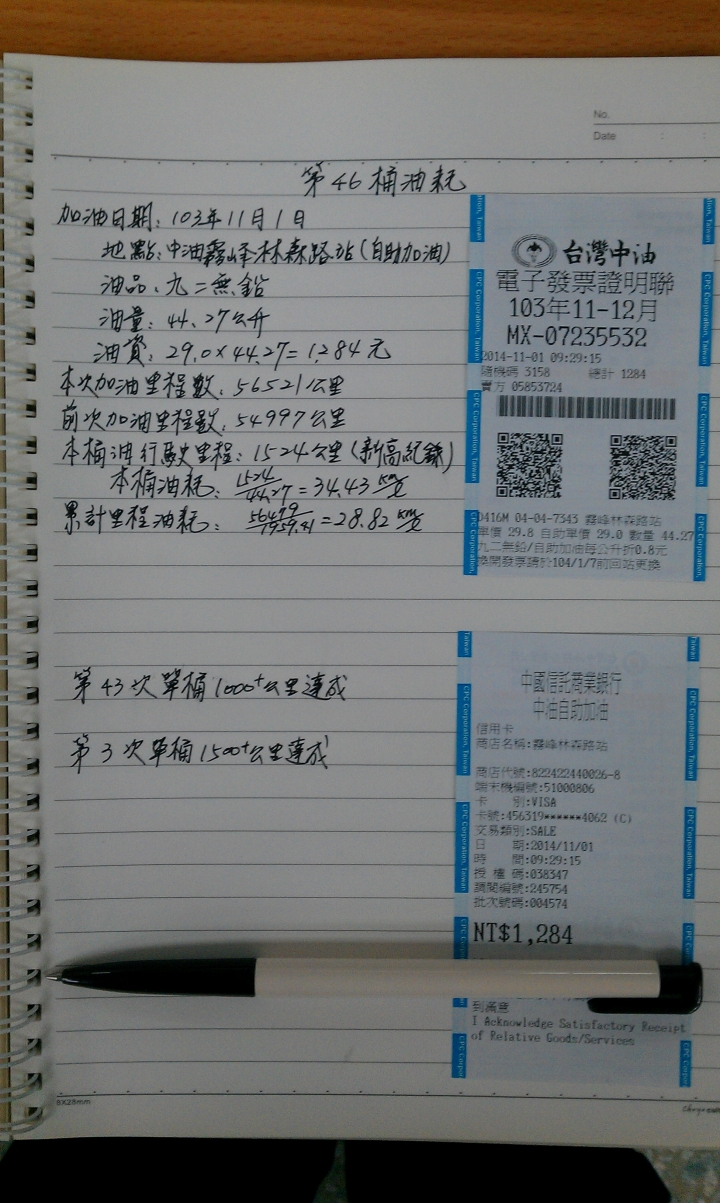 No.
Date : :
第46桶油耗
加油日期：103年11月1日
地點：中油霧峰林森路站(自助加油)
油品：九二無鉛
油量：44.27公升
油資：29.0×44.27=1,284元
本次加油里程數：56521公里
前次加油里程數：54997公里
本桶油行駛里程：1524公里(新高紀錄)
本桶油耗：1524/44.27=34.43 km/ℓ
累計里程油耗：56479/1959.41=28.82 km/ℓ
第43次單桶1000+公里達成
第3次單桶1500+公里達成
台灣中油
電子發票證明聯
103年11-12月
MX-07235532
2014-11-01 09:29:15
隨機碼 3158 總計 1284
賣方 05853724
D416M 04-04-7343 霧峰林森路站
單價 29.8 自助單價 29.0 數量 44.27
九二無鉛/自助加油每公升折0.8元
換開發票請於104/1/7前回站更換
CPC Corporation, Taiwan
中國信託商業銀行
中油自助加油
信用卡
商店名稱:霧峰林森路站
商店代號:822422440026-8
端末機編號:51000806
卡 別:VISA
卡號:456319******4062 (C)
交易類別:SALE
日 期:2014/11/01
時 間:09:29:15
授權碼:038347
調閱編號:245754
批次號碼:004574
NT$1,284
到滿意
I Acknowledge Satisfactory Receipt
of Relative Goods/Services
CPC Corporation, Taiwan
8X28mm